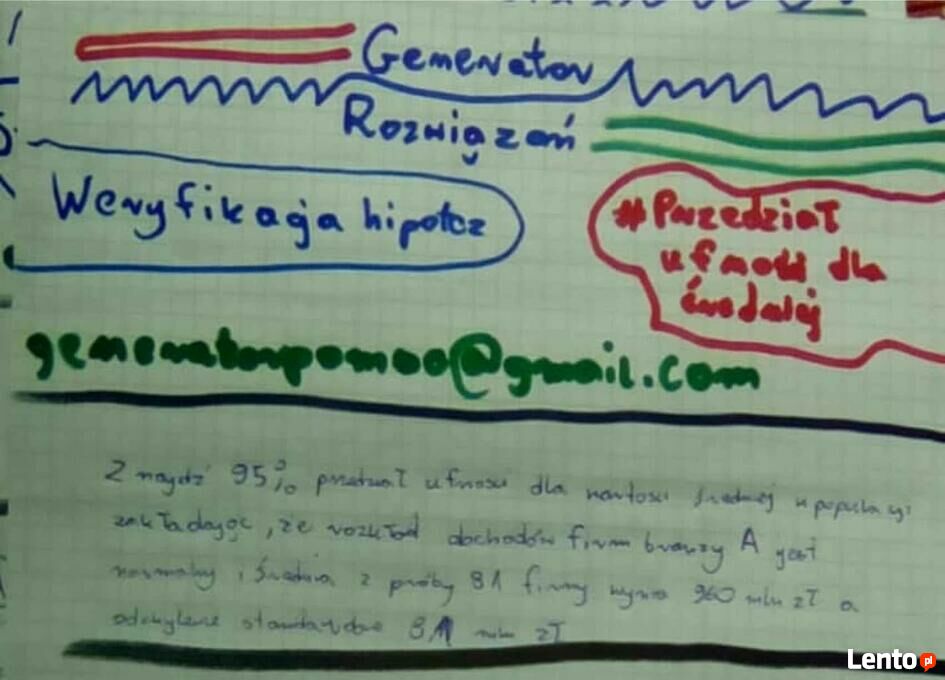 Generator
Rozwiązań
Weryfikacja hipotez
#Przedział
ufności dla
średniej
generatorpomoc@gmail.com
Znajdź 95% przedział ufności dla wartości średniej w populacji
zakładając, że rozkład dochodów firm branży A jest
normalny i średnia z próby 81 firmy wynosi 960 mln zł a
odchylenie standardowe 81 mln zł
Lento pl